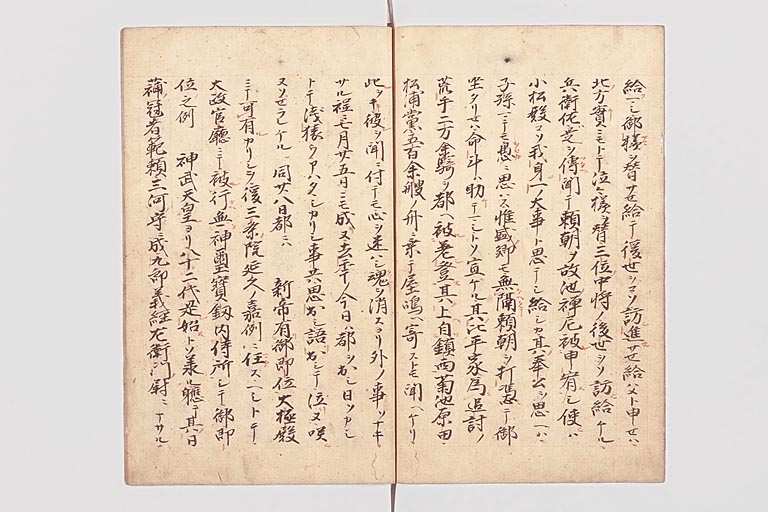 給ヘシ御様ヲ替サせ給テ後世ヲコソ訪進サせ給ハメト申せハ
北方實ニモトテ泣々様ヲ替三位中将ノ後世ヲソ訪給ケル
兵衛佐是ヲ傳聞テ頼朝ヲ故池禅尼被申宥シ使ハ
小松殿コソ我身一大事ト思テシ給シカ其奉公ヲ思ヘハ
子孫ニテモ愚ニ思ハス惟盛卿モ無隔頼朝ヲ打憑テ御
坐タリせハ命斗ハ助テマシトソ宣ケル其比平家為追討ノ
荒手二万余騎ヲ都ヘ被差登其上自鎮西菊池原田
松浦黨五百余艘ノ舟ニ乗テ屋嶋ヘ寄ストモ聞ヘケリ
此ヲキ彼ヲ聞ニ付テモ心ヲ迷ハシ魂ヲ消スヨリ外ノ事ソナキ
サル程ニ七月廿五日ニモ成ヌ去年ノ今日ハ都ヲ出シ日ソカシ
トテ浅猿ウアハタヽシカリシ事共思出シ語出シテ泣ヌ咲
スソせラレケル 同廿八日都ニハ 新帝有御即位大極殿
ニテ可有カリシヲ後三条院延久ノ嘉例ニ任スヘシトテ
大政官廳ニテ被行無神璽寶釼内侍所シテ御即
位之例 神武天皇ヨリ八十二代是始トソ承ル軈テ其日
蒲冠者範頼三河守ニ成九郎義經左衛門尉ニナサル